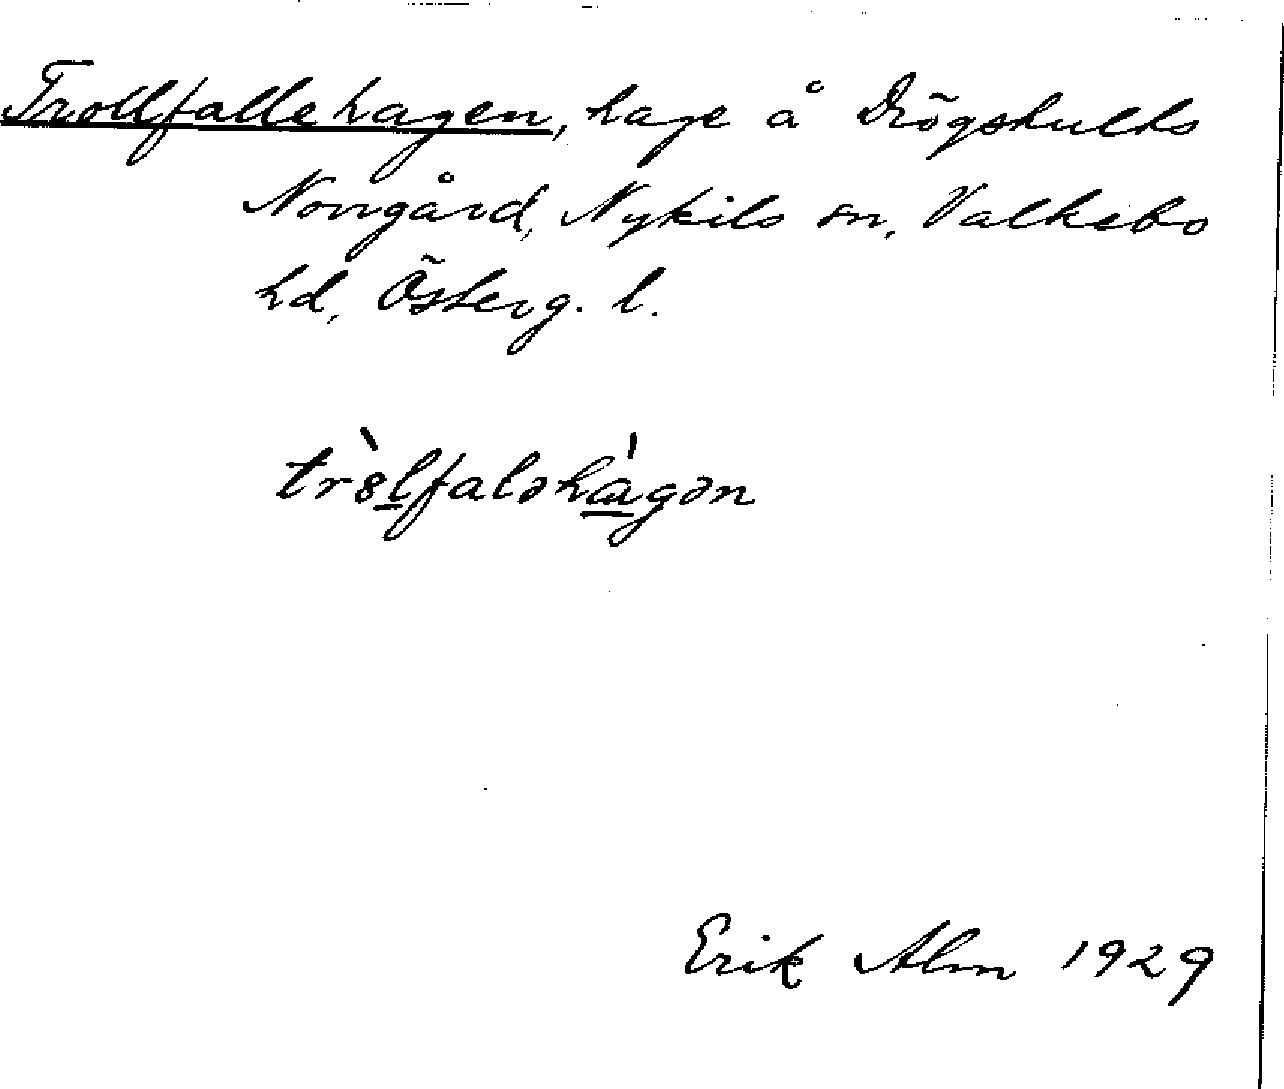 Trollfallehagen, hage å Drögshults
Norrgård, Nykils sn, Valkebo
hd, Österg. l.
tr8̀lfaləhàgən
Erik Alm 1929